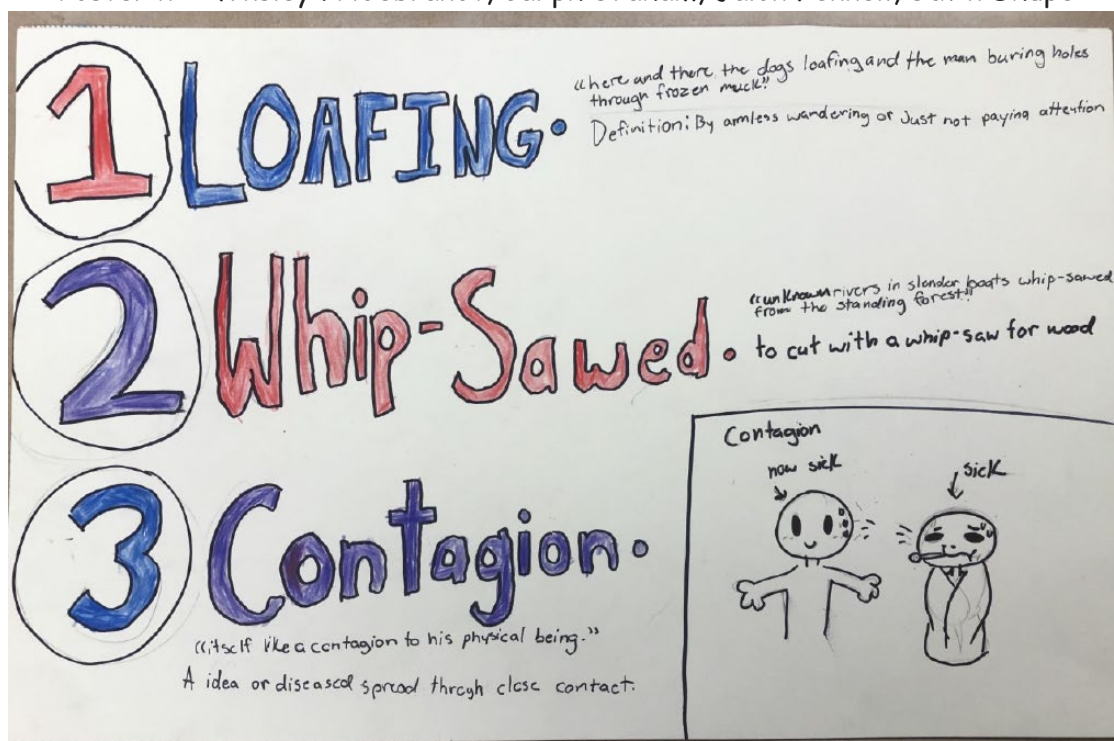 1 LOAFING.
"here and there, the dogs loafing and the man buring holes
through frozen muck."
Definition: By armless wandering or Just not paying attention
2 Whip-Sawed.
"unknown rivers in slender boats whip-sawed
from the standing forest."
to cut with a whip-saw for wood
3 Contagion.
"itself like a contagion to his physical being."
A idea or diseased spread through close contact.
Contagion
now sick
sick